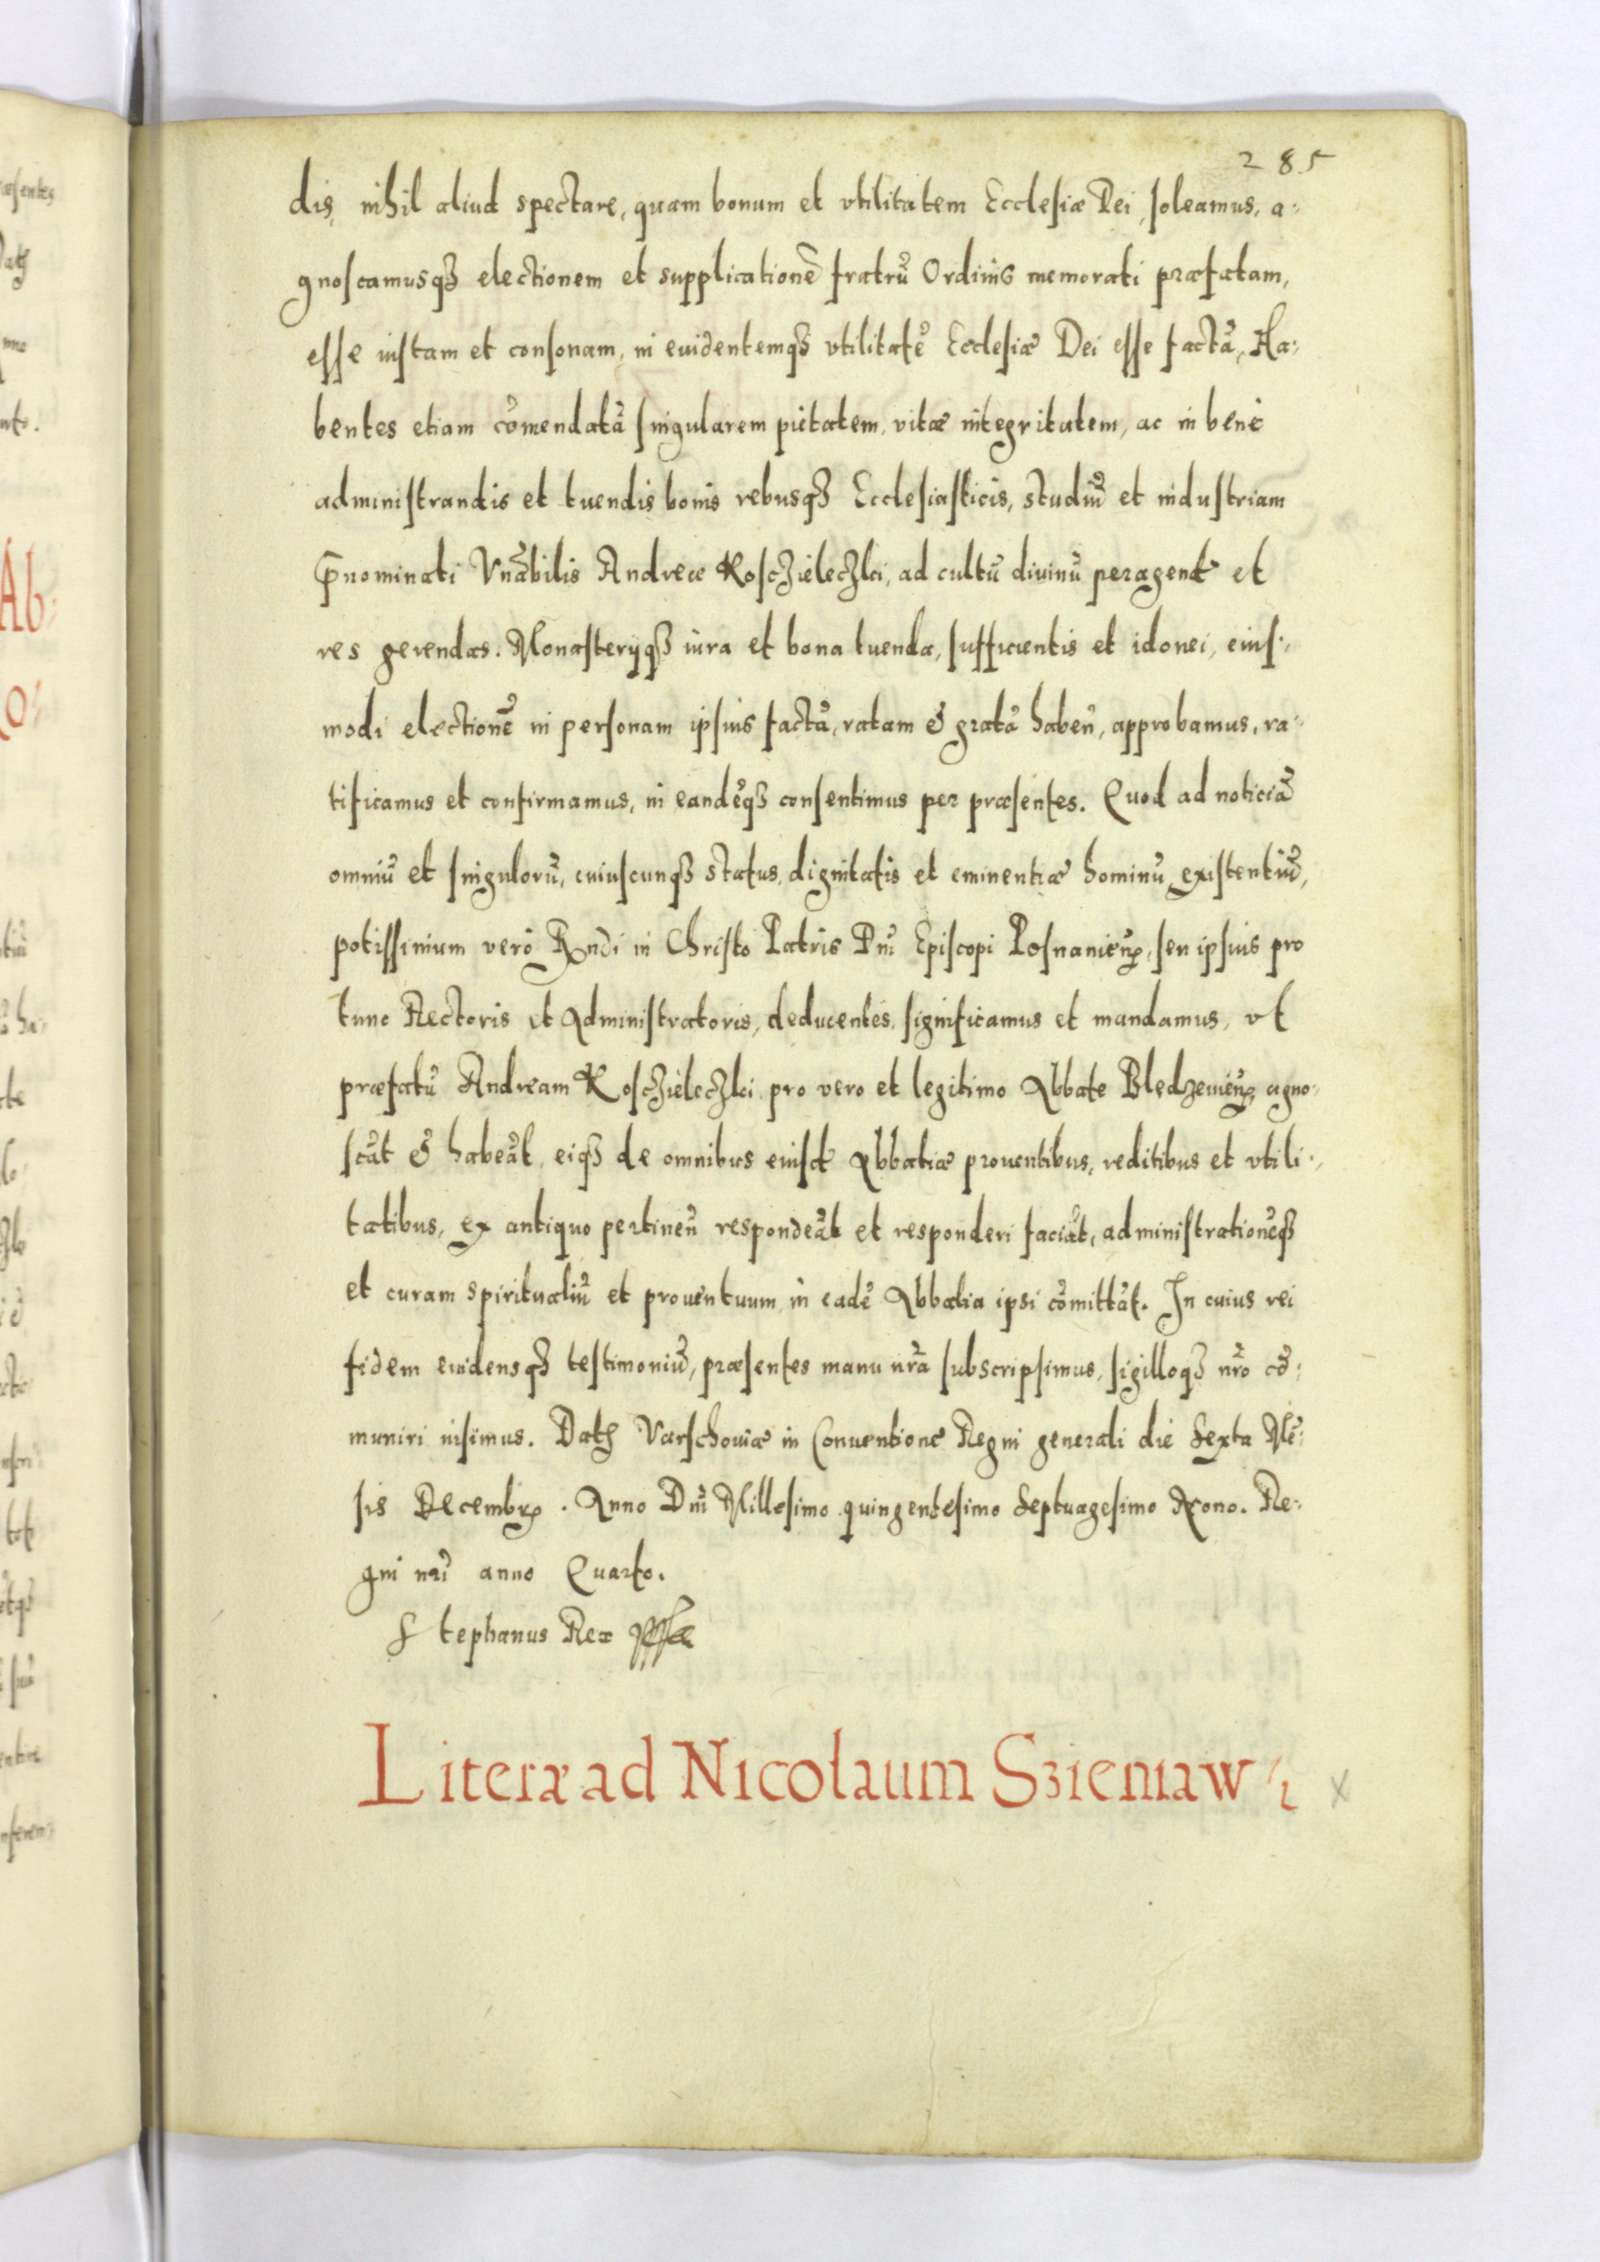 285
dis, nihil aliud spectare, quam bonum et vtilitatem Ecclesiæ Dei, soleamus, a-
gnoscamusqꝫ electionem et supplicationē fratrū Ordinis memorati præfatam,
esse iustam et consonam, in euidentemqꝫ vtilitatē Ecclesiæ Dei esse factā, Ha-
bentes etiam cōmendatā singularem pietatem, vitæ integritatem, ac in bene
administrandis et tuendis bonis rebusqꝫ Ecclesiasticis, studiū et industriam
p̄nominati Vn̄abilis Andreæ Kosczieleczki, ad cultū diuinū peragend et
res gerendas. Monasterijqꝫ iura et bona tuenda, sufficientis et idonei, eius-
modi electionē in personam ipsius factā, ratam & gratā haben̄, approbamus, ra-
tificamus et confirmamus, in eandēqꝫ consentimus per præsentes. Quod ad noticiā
omniū et singulorū, cuiuscunqꝫ status, dignitatis et eminentiæ hominū existentiū,
potissimum vero Rndi in Christo Patris Dn̄i Episcopi Posnanien, seu ipsius pro
tunc Rectoris et Administratoris, deducentes, significamus et mandamus, vt
præfatū Andream Kosczieleczki pro vero et legitimo Abbate Bledzeuien agno-
scāt & habeāt, eiqꝫ de omnibus eiusd Abbatiæ prouentibus, reditibus et vtili-
tatibus, ex antiquo pertinen̄ respondeāt et responderi faciāt, administrationēqꝫ
et curam spiritualiū et prouentuum in eadē Abbatia ipsi cōmittāt. In cuius rei
fidem euidensqꝫ testimoniū, præsentes manu nr̄a subscripsimus, sigilloqꝫ nr̄o cō-
muniri iusimus. Dat Varschouiæ in Conuentione Regni generali die Sexta Mē-
sis Decembr. Anno Dn̄i Millesimo quingentesimo Septuagesimo Nono. Re-
gni nr̄i anno Quarto.
Stephanus Rex
Literæ ad Nicolaum Szieniaw